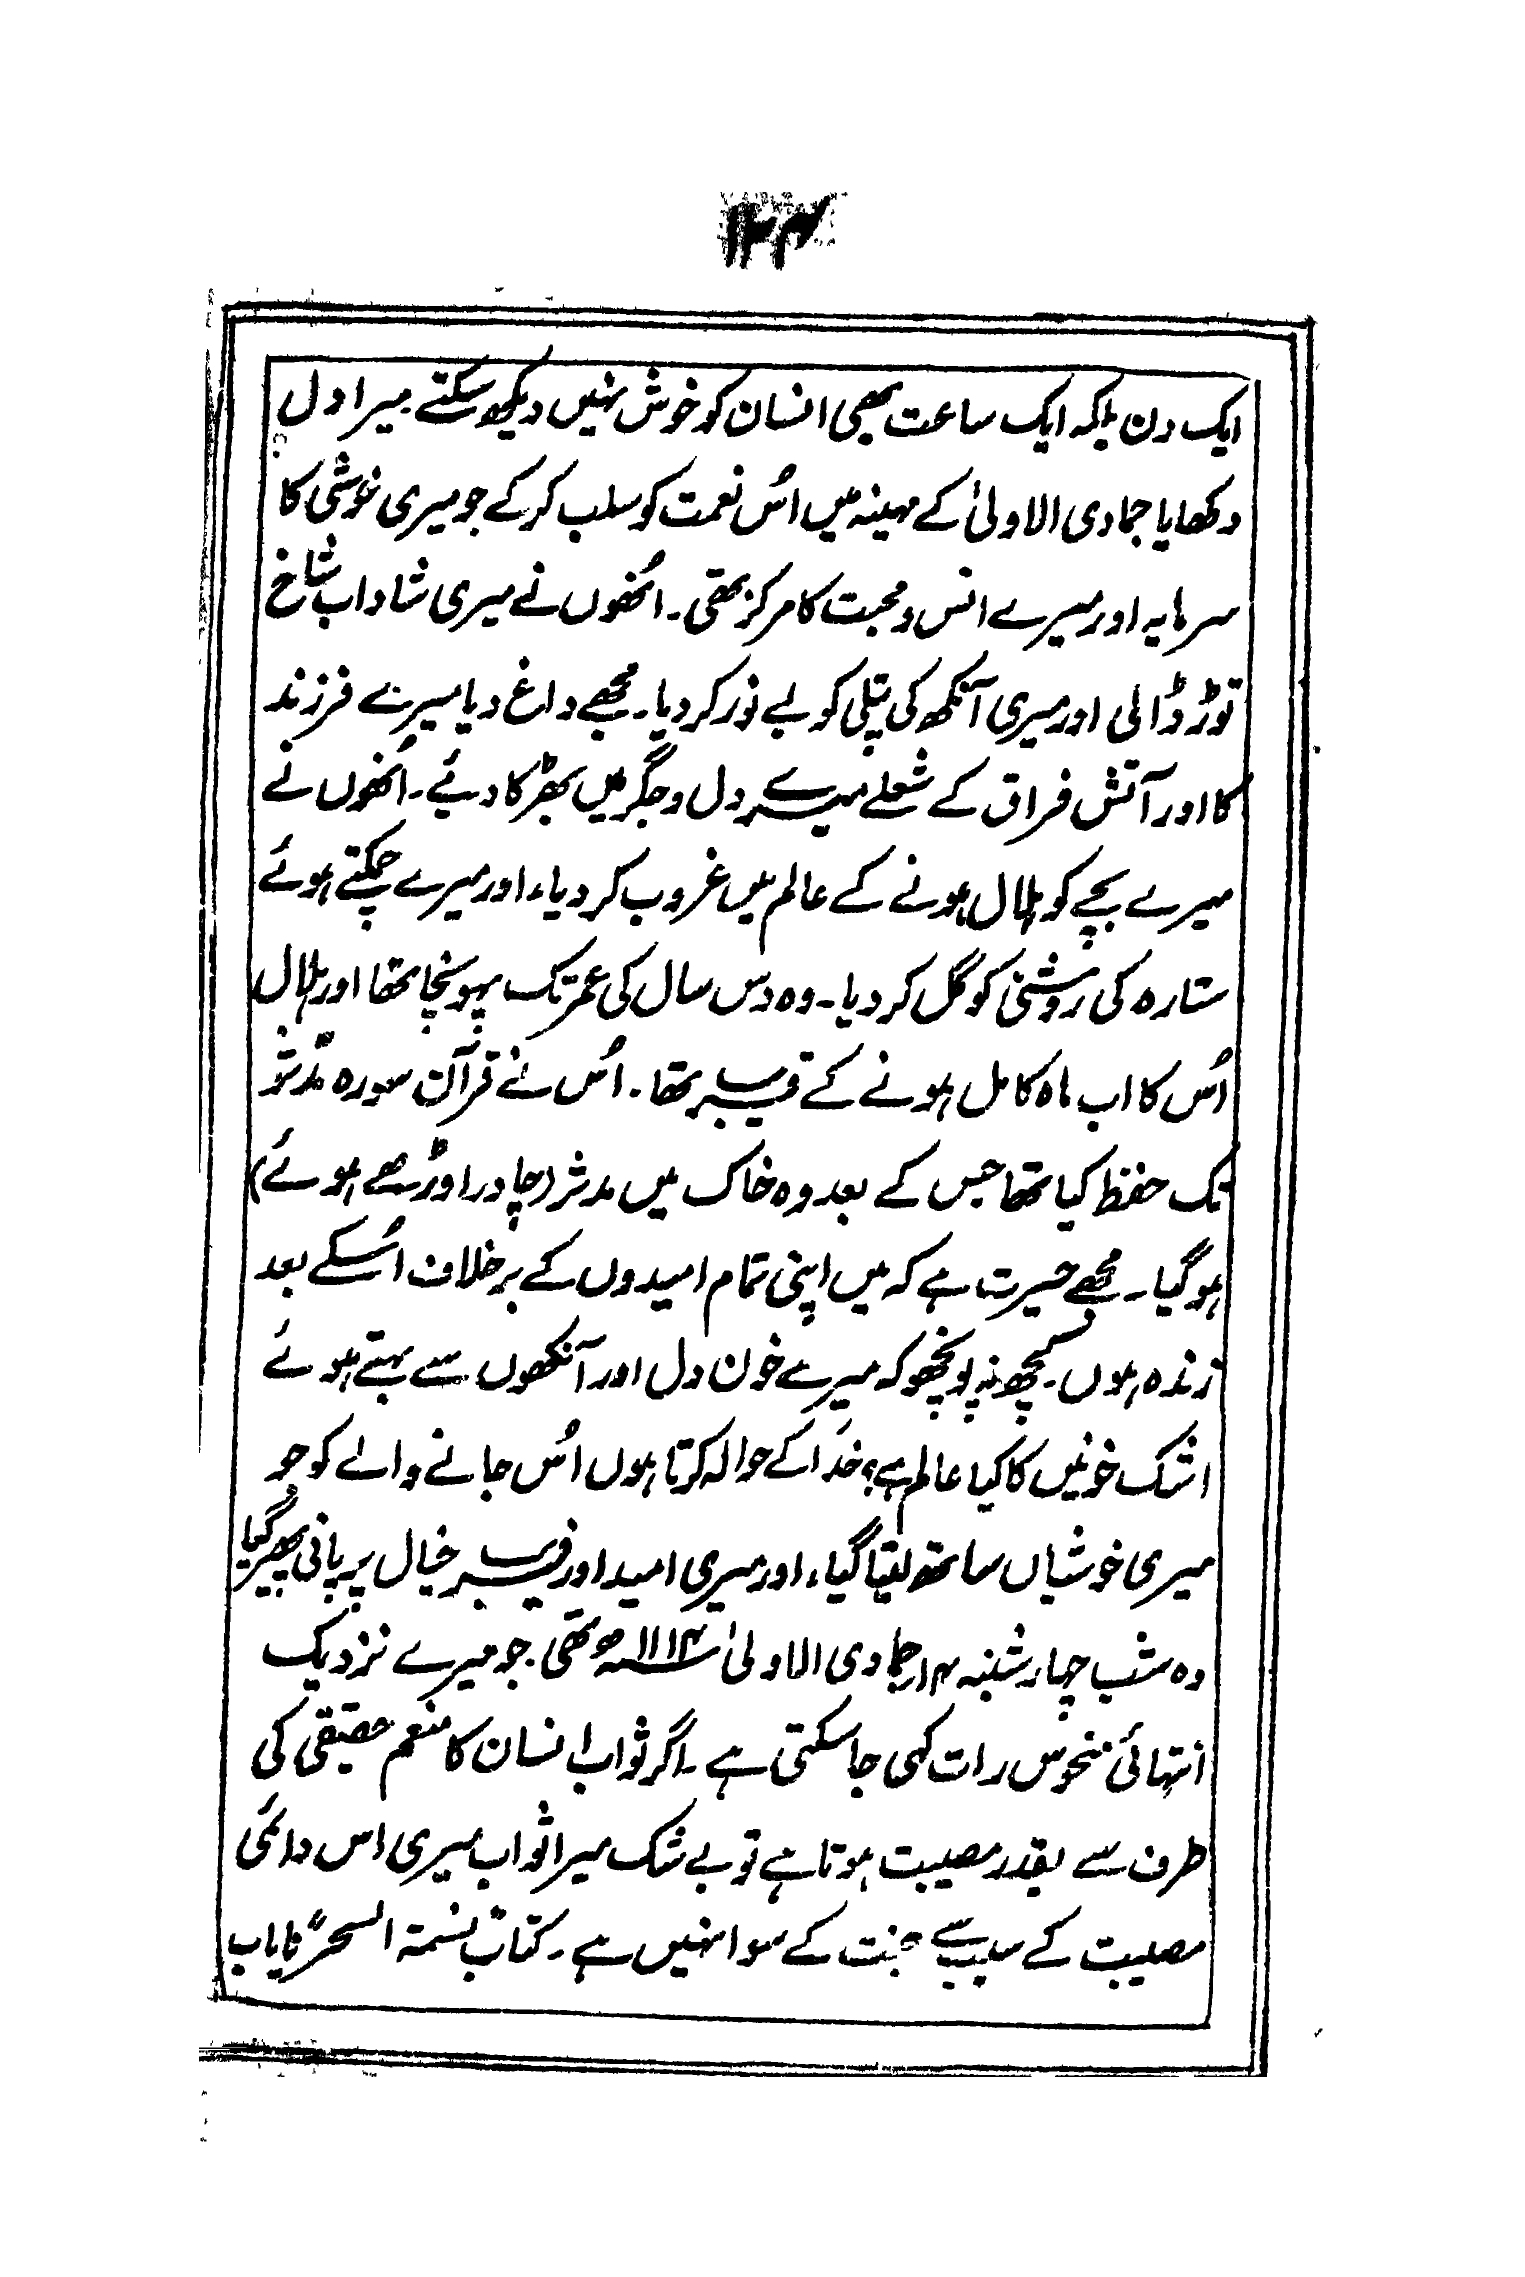 ۱۲۴
ایک دن بلکہ ایک ساعت بھی انسان کو خوش نہیں دیکھ سکتے میرا دل
دکھایا جمادی الاولیٰ کے مہینہ میں اُس نعمت کو سلب کر کے جو میری خوشی کا
سرمایہ اور میرے انس و محبت کا مرکز تھی۔ اُنھوں نے میری شاداب شاخ
توڑ ڈالی اور میری آنکھ کی پتلی کو بے نور کر دیا۔ مجھے داغ دیا میرے فرزند
کا اور آتش فراق کے شعلے میرے دل و جگر میں بھڑکا دیئے۔ اُنھوں نے
میرے بچے کو ہلال ہونے کے عالم میں غروب کر دیا، اور میرے چمکتے ہوئے
ستارہ کی روشنی کو گل کر دیا۔ وہ دس سال کی عمر تک پہونچا تھا اور ہلال
اُس کا اب ماہ کامل ہونے کے قریب تھا۔ اُس نے قرآن سورہ مدّثر
تک حفظ کیا تھا جس کے بعد وہ خاک میں مدثر (چادر اوڑھے ہوئے)
ہو گیا۔ مجھے حیرت ہے کہ میں اپنی تمام امیدوں کے برخلاف اُسکے بعد
زندہ ہوں۔ کچھ نہ پوچھو کہ میرے خون دل اور آنکھوں سے بہتے ہوئے
اشک خونیں کا کیا عالم ہے؟ خدا کے حوالہ کرتا ہوں اُس جانے والے کو جو
میری خوشیاں ساتھ لیتا گیا، اور میری امید اور فریب خیال پر پانی پھیر گیا
وہ شب چہار شنبہ ۱۴ جمادی الاولیٰ ۱۱۱۴ھ تھی۔ جو میرے نزدیک
انتہائی منحوس رات کہی جا سکتی ہے۔ اگر ثواب انسان کا منعم حقیقی کی
طرف سے بقدر مصیبت ہوتا ہے تو بے شک میرا ثواب میری اس دائمی
مصیبت کے سبب سے جنت کے سوا نہیں ہے۔ کتاب نسمۃ السحر نایاب